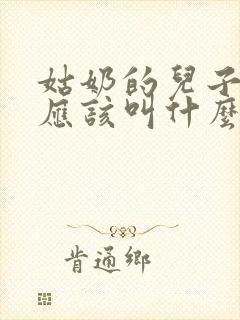 姑奶的兒子
應該叫什麼
肯通鄉